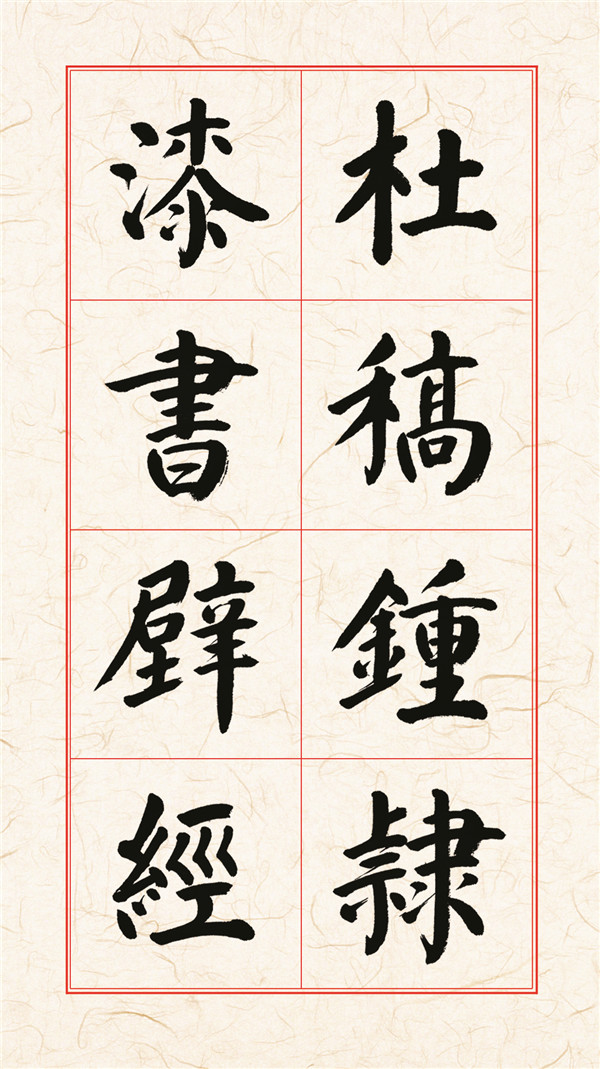 杜稿鍾隸
漆書壁經